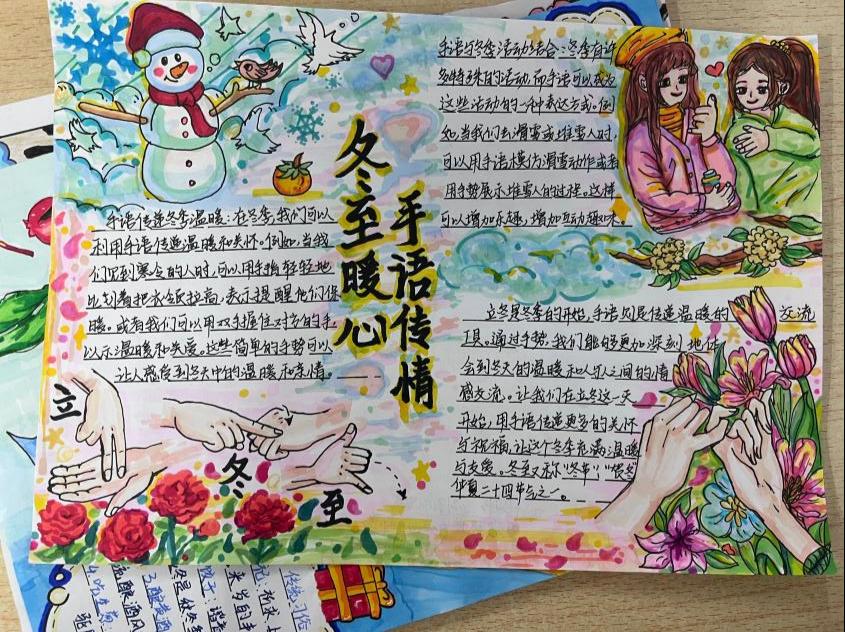 冬至暖心
手语传情
手语传递冬季温暖:在冬季,我们可以
利用手语传递温暖和关怀。例如,当我
们见到寒冷的人时,可以用手指轻轻地
比划着把衣领拉高,表示提醒他们保
暖。或者我们可以用双手握住对方的手,
以示温暖和关爱。这些简单的手势可以
让人感受到冬天中的温暖和亲情。
立
冬
至
手语与冬季活动结合:冬季有许
多特殊的活动,而手语可以成为
这些活动的一种表达方式。例
如,当我们去滑雪或堆雪人时,
可以用手语模仿滑雪动作或者
用手势展示堆雪人的过程。这样
可以增加乐趣,增加互动趣味。
立冬是冬季的开始,手语则是传递温暖的交流
工具。通过手势,我们能够更加深刻地体
会到冬天的温暖和人与人之间的情
感交流。让我们在立冬这一天
开始,用手语传递更多的关怀
与祝福,让这个冬季充满温暖
与友爱。冬至又称“冬节”
二十四节之一。
传统习俗